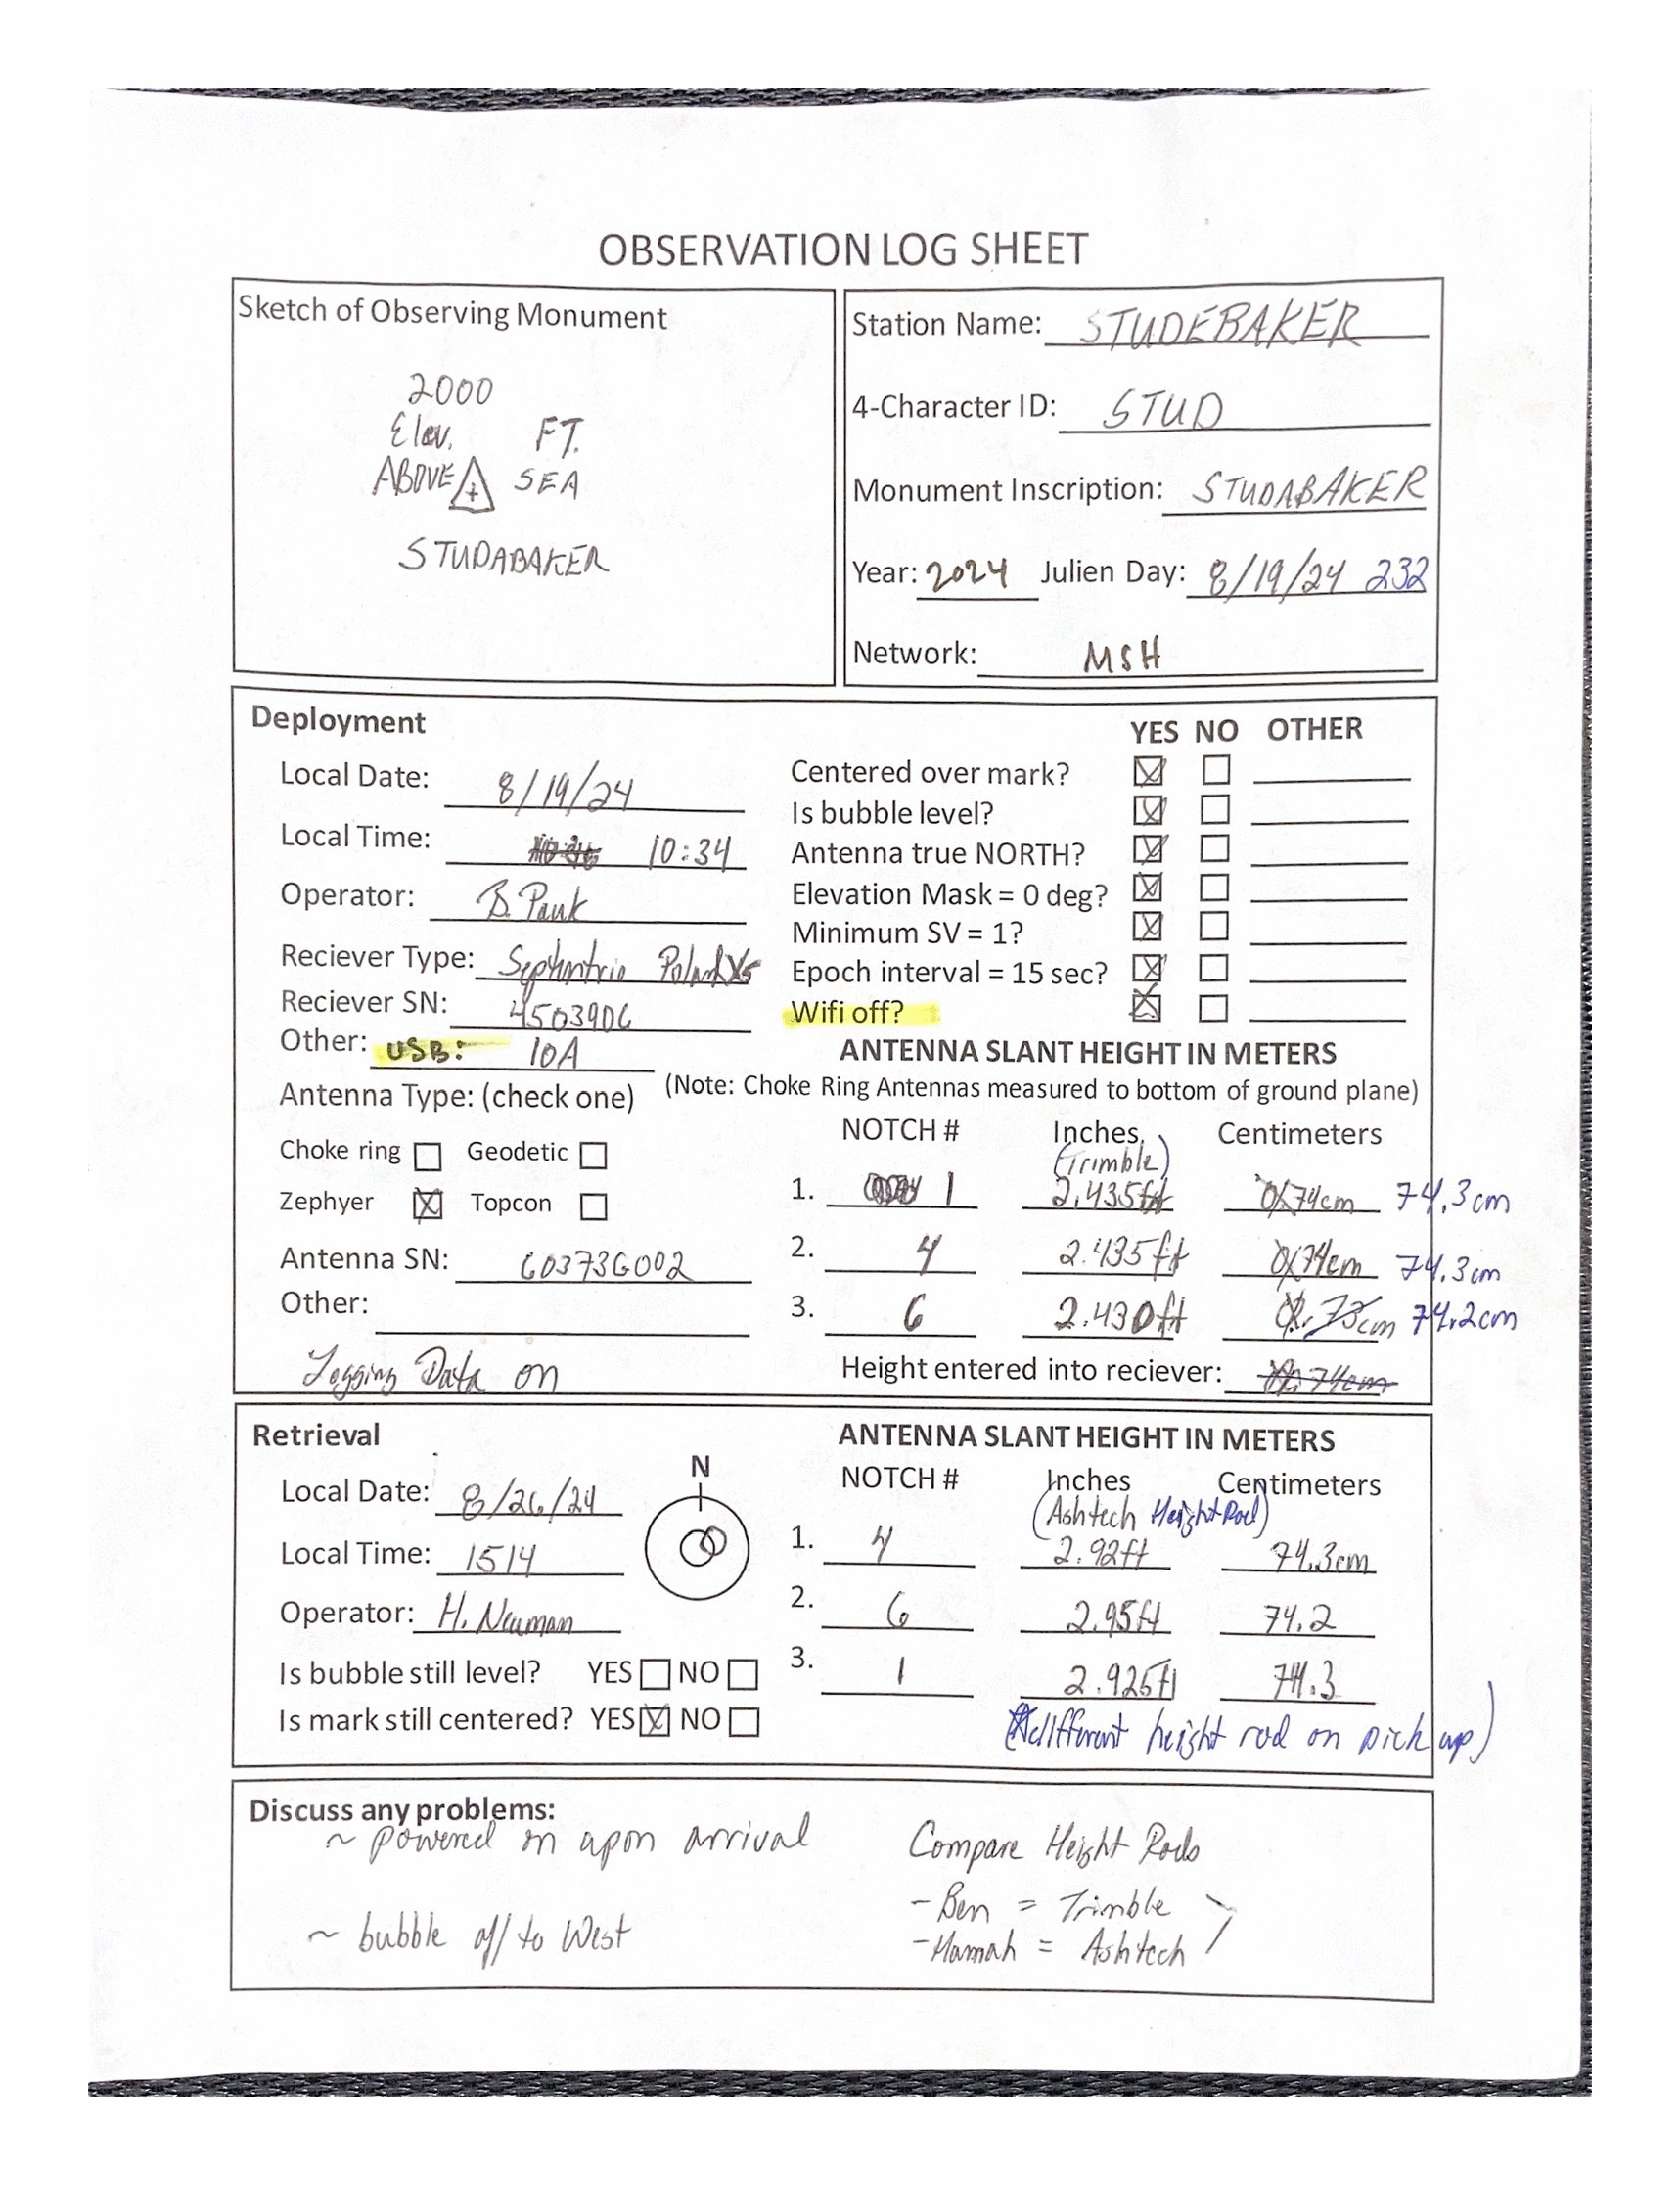 OBSERVATION LOG SHEET
Sketch of Observing Monument
2000
Elev. FT.
ABOVE SEA
STUDABAKER
Station Name: STUDEBAKER
4-Character ID: STUD
Monument Inscription: STUDABAKER
Year: 2024 Julien Day: 8/19/24 232
Network: MSH
Deployment
Local Date: 8/19/24
Local Time: 10:34
Operator: B. Pauk
Reciever Type: Septentrio PolaRX5
Reciever SN: 4503906
Other: USB: 10A
Antenna Type: (check one)
Choke ring Geodetic
Zephyer Topcon
Antenna SN: 60373G002
Other:
Logging Data on
YES NO OTHER
Centered over mark?
Is bubble level?
Antenna true NORTH?
Elevation Mask = 0 deg?
Minimum SV = 1?
Epoch interval = 15 sec?
Wifi off?
ANTENNA SLANT HEIGHT IN METERS
(Note: Choke Ring Antennas measured to bottom of ground plane)
NOTCH # Inches Centimeters
(Trimble)
1. 1 2.435ft 0.74cm 74.3cm
2. 4 2.435ft 0.74cm 74.3cm
3. 6 2.430ft 0.73cm 74.2cm
Height entered into reciever: 74cm
Retrieval
Local Date: 8/26/24
Local Time: 1514
Operator: H. Neuman
Is bubble still level? YES NO
Is mark still centered? YES NO
N
ANTENNA SLANT HEIGHT IN METERS
NOTCH # Inches Centimeters
(Ashtech Height Rod)
1. 4 2.92ft 74.3cm
2. 6 2.95ft 74.2
3. 1 2.925ft 74.3
(different height rod on pick up)
Discuss any problems:
~ powered on upon arrival
~ bubble off to West
Compare Height Rods
- Ben = Trimble
- Hannah = Ashtech